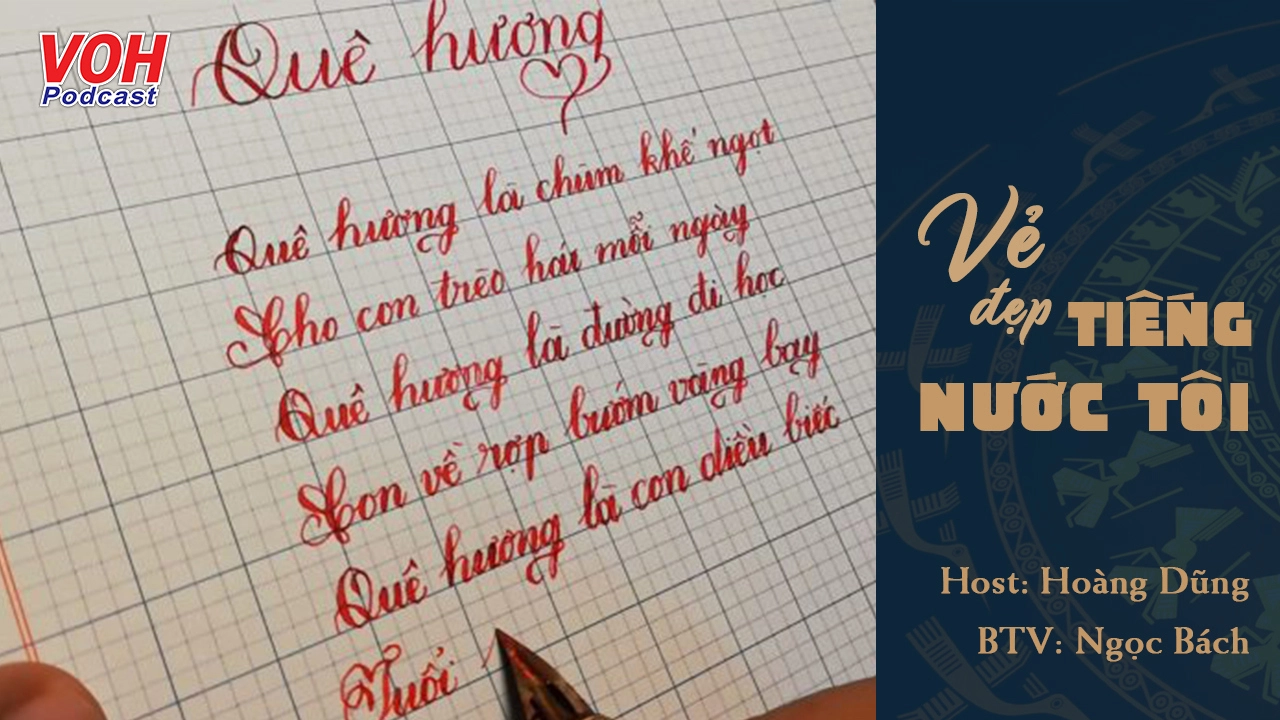 VOH
Podcast
Quê hương
Quê hương là chùm khế ngọt
Cho con trèo hái mỗi ngày
Quê hương là đường đi học
Con về rợp bướm vàng bay
Quê hương là con diều biếc
Tuổi
Vẻ
đẹp TIẾNG
NƯỚC TÔI
Host: Hoàng Dũng
BTV: Ngọc Bách